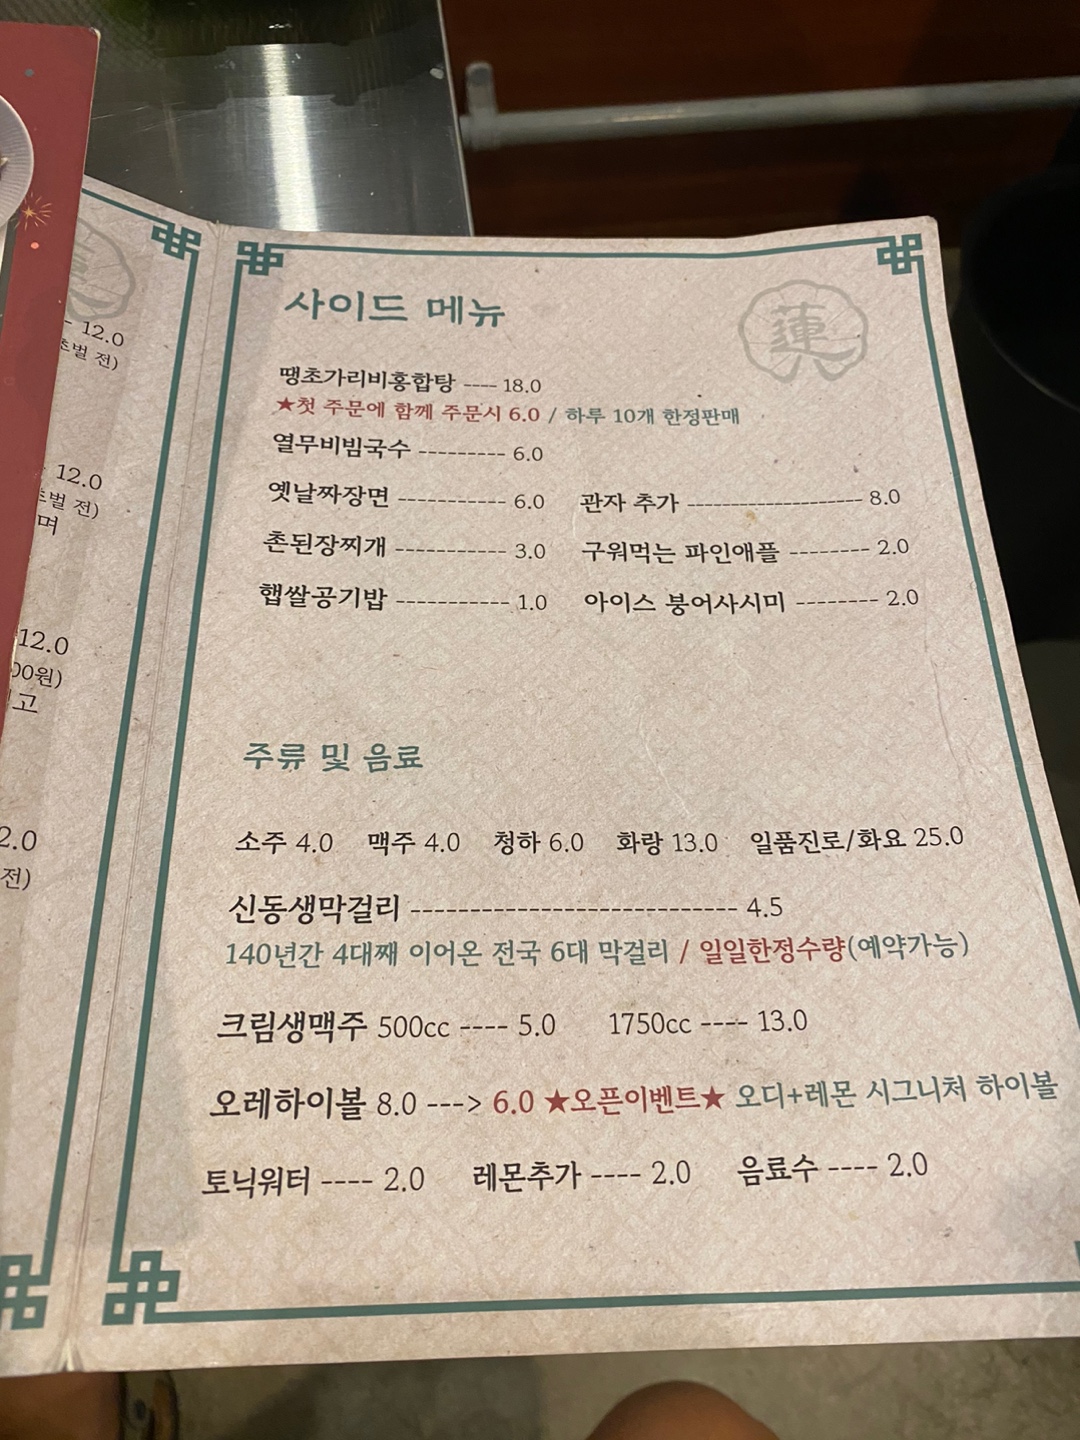 12.0
초벌 전)
12.0
초벌 전)
며
12.0
00원)
고
2.0
전)
사이드 메뉴
蓮
땡초가리비홍합탕 ---- 18.0
★첫 주문에 함께 주문시 6.0 / 하루 10개 한정판매
열무비빔국수 --------- 6.0
옛날짜장면 ----------- 6.0 관자 추가 ------------------- 8.0
촌된장찌개 ----------- 3.0 구워먹는 파인애플 -------- 2.0
햅쌀공기밥 ----------- 1.0 아이스 붕어사시미 -------- 2.0
주류 및 음료
소주 4.0 맥주 4.0 청하 6.0 화랑 13.0 일품진로/화요 25.0
신동생막걸리 ---------------------------- 4.5
140년간 4대째 이어온 전국 6대 막걸리 / 일일한정수량(예약가능)
크림생맥주 500cc ---- 5.0 1750cc ---- 13.0
오레하이볼 8.0 ---> 6.0 ★오픈이벤트★ 오디+레몬 시그니처 하이볼
토닉워터 ---- 2.0 레몬추가 ---- 2.0 음료수 ---- 2.0